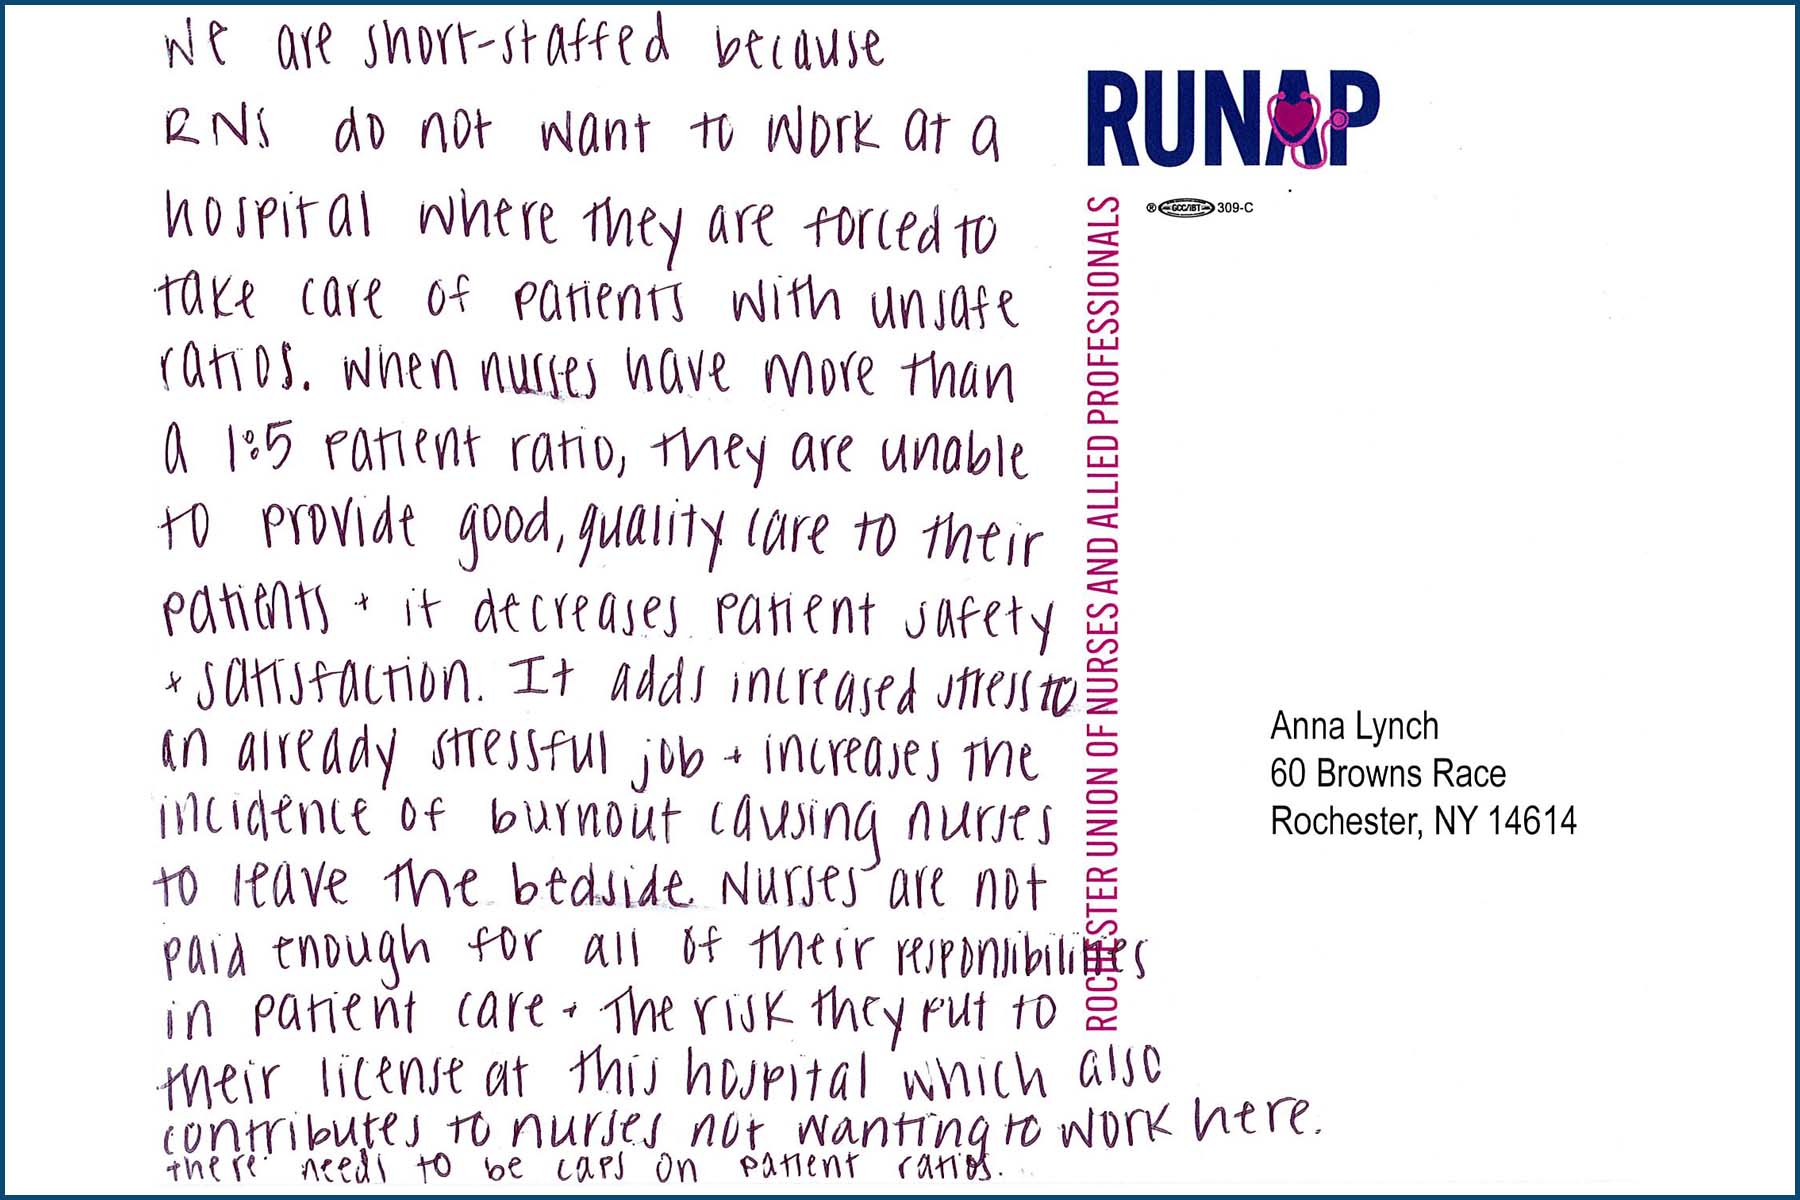 We are short-staffed because
RNs do not want to work at a
hospital where they are forced to
take care of patients with unsafe
ratios. When nurses have more than
a 1:5 patient ratio, they are unable
to provide good, quality care to their
patients + it decreases patient safety
+ satisfaction. It adds increased stress to
an already stressful job + increases the
incidence of burnout causing nurses
to leave the bedside. Nurses are not
paid enough for all of their responsibilities
in patient care + the risk they put to
their license at this hospital which also
contributes to nurses not wanting to work here.
there needs to be caps on patient ratios.
RUNAP
® GCC/IBT 309-C
ROCHESTER UNION OF NURSES AND ALLIED PROFESSIONALS
Anna Lynch
60 Browns Race
Rochester, NY 14614